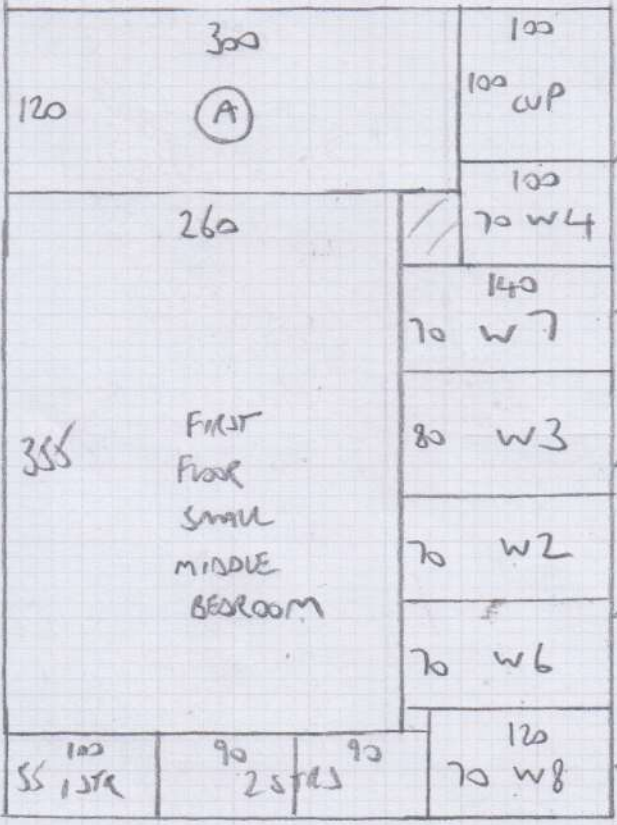 300
120
A
100
100 CUP
100
70 W4
260
140
70 W7
355
FIRST
FLOOR
SMALL
MIDDLE
BEDROOM
80 W3
70 W2
70 W6
100
55 1 STR
90
90
2 STRS
120
70 W8